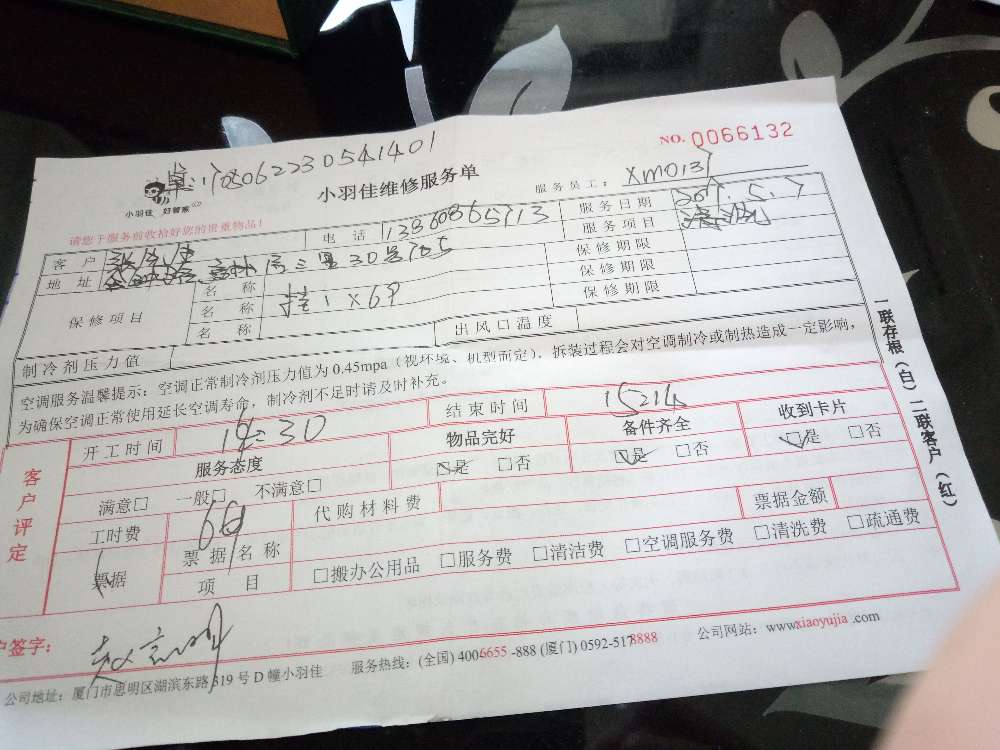 NO. 0066132
小羽佳 好管家
小羽佳维修服务单
服务员工：XM0137
请您于服务前收拾好您的贵重物品！
客户
电话 13860865713
服务日期 5.7
地址
服务项目 清洗
保修项目
名称
保修期限
名称 挂1×69
保修期限
名称
保修期限
制冷剂压力值
出风口温度
空调服务温馨提示：空调正常制冷剂压力值为0.45mpa（视环境、机型而定），拆装过程会对空调制冷或制热造成一定影响，
为确保空调正常使用延长空调寿命，制冷剂不足时请及时补充。
客户评定
开工时间 14:30
结束时间 15:14
服务态度
物品完好
备件齐全
收到卡片
满意□ 一般□ 不满意□
☑是 □否
☑是 □否
☑是 □否
工时费 69
代购材料费
票据金额
票据
票据名称
项目
□搬办公用品 □服务费 □清洁费 □空调服务费 □清洗费 □疏通费
户签字：
公司地址：厦门市思明区湖滨东路319号D幢小羽佳 服务热线：(全国) 4006655-888 (厦门) 0592-5178888 公司网站：www.xiaoyujia.com
一联存根（白）二联客户（红）